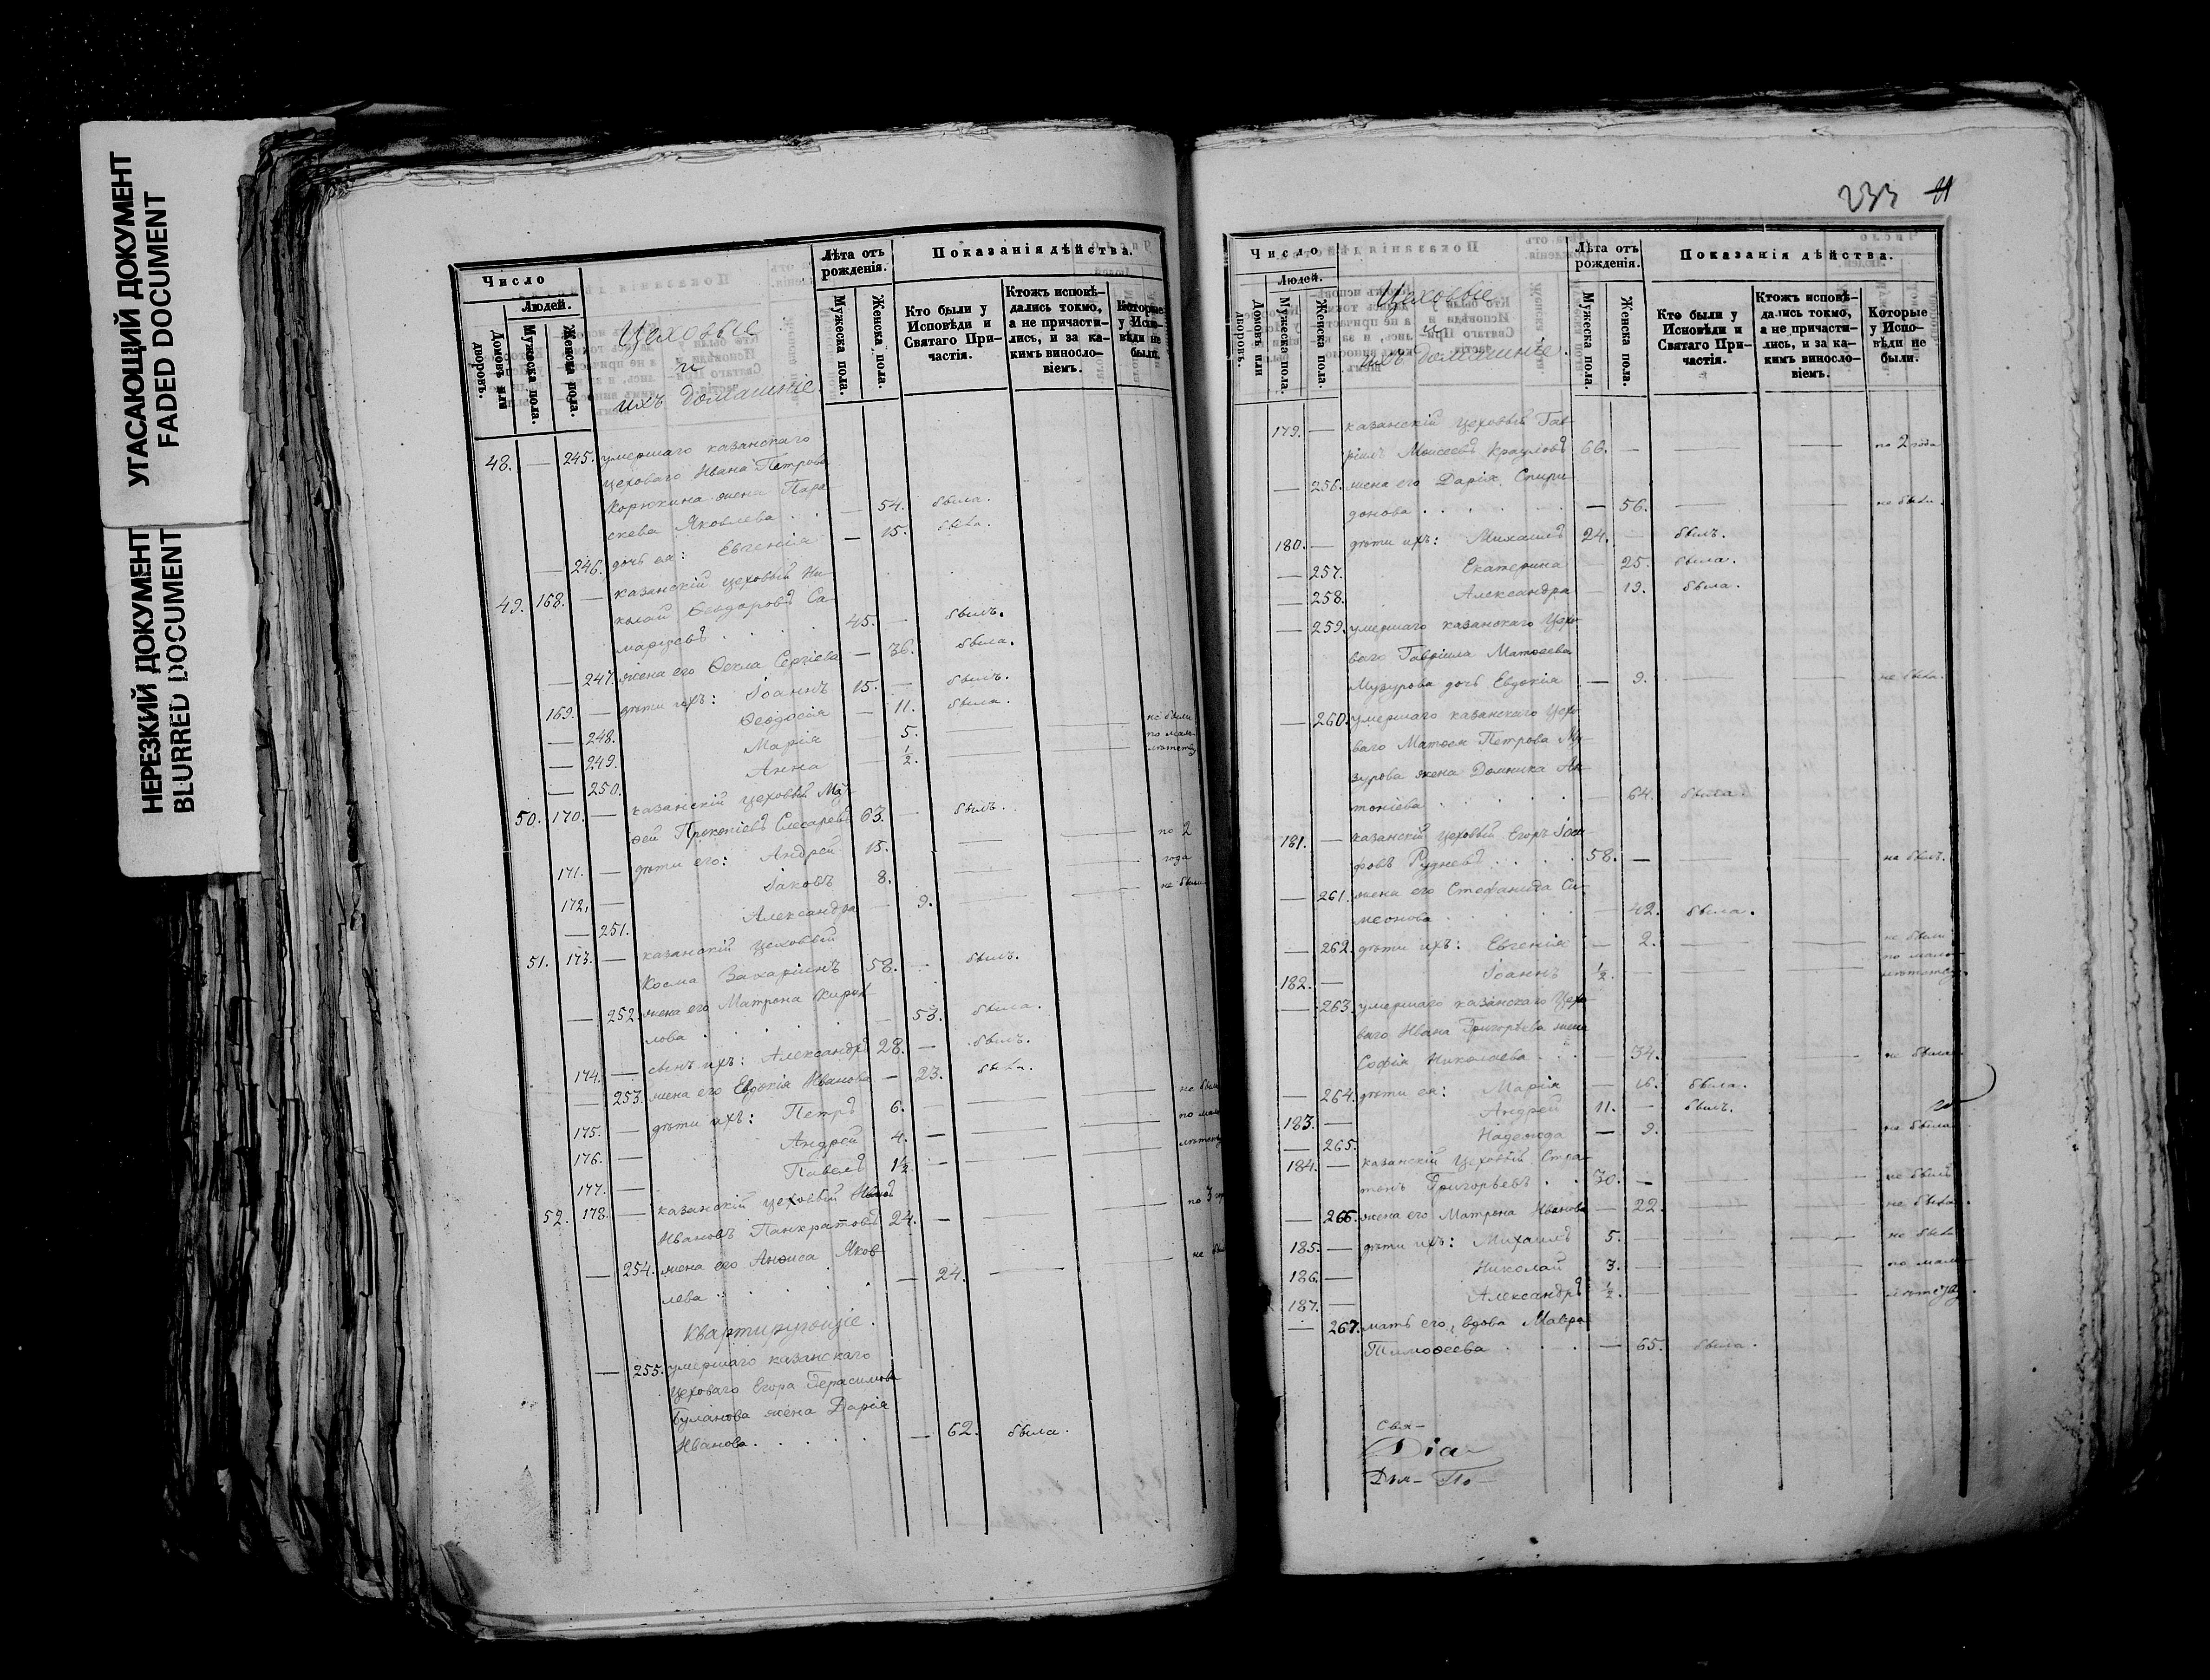 УГАСАЮЩИЙ ДОКУМЕНТ
FADED DOCUMENT
НЕРЕЗКИЙ ДОКУМЕНТ
BLURRED DOCUMENT
Число
Людей.
Домовъ или дворовъ.
Мужеска пола.
Женска пола.
Цеховые
и
ихъ домашніе.
Лѣта отъ рожденія.
Мужеска пола.
Женска пола.
Показанія дѣйства.
Кто были у Исповѣди и Святаго Причастія.
Ктожъ исповѣдались токмо, а не причастились, и за какимъ винословіемъ.
Которые у Исповѣди не были.
48. — 245. умершаго казанскаго
цеховаго Ивана Петрова
Корюкина жена Пара-
скева Яковлева . . — 54. была.
— 246. дочь ея: Евгенія — 15. была.
49. 168. — казанскій цеховый Ни-
колай Ѳеодоровъ Са-
марцевъ . . . . 45. — былъ.
— 247. жена его Ѳекла Сергіева — 36. была.
169. — дѣти ихъ: Іоаннъ 15. — былъ.
— 248. Ѳеодосія — 11. была.
— 249. Марія — 5. — не были
— 250. Анна — ½. — по мало-
лѣтству
50. 170. — казанскій цеховый Мат-
ѳей Прокопіевъ Слесаревъ 63. — былъ.
171. — дѣти его: Андрей 15. — по 2
172. — Іаковъ 8. — года
— 251. Александра — 9. — не были
51. 173. — казанскій цеховый
Косма Захаріинъ 58. — былъ.
— 252. жена его Матрона Кирил-
лова . . . . — 53. была.
174. — сынъ ихъ: Александръ 28. — былъ.
— 253. жена его Евдокія Иванова — 23. была.
175. — дѣти ихъ: Петръ 6. — не были
176. — Андрей 4. — по мало-
177. — Павелъ 1½. — лѣтству
52. 178. — казанскій цеховый
Ивановъ Панкратовъ 24. — по 3
— 254. жена его Анѳиса Яков-
лева . . . . — 24. — не
Квартирующіе.
— 255. умершаго казанскаго
цеховаго Егора Герасимова
Буланова жена Дарія
Иванова . . . . . — 62. была.
233
Число
Людей.
Домовъ или дворовъ.
Мужеска пола.
Женска пола.
Цеховые
и
ихъ домашніе.
Лѣта отъ рожденія.
Мужеска пола.
Женска пола.
Показанія дѣйства.
Кто были у Исповѣди и Святаго Причастія.
Ктожъ исповѣдались токмо, а не причастились, и за какимъ винословіемъ.
Которые у Исповѣди не были.
179. — казанскій цеховый Гав-
ріилъ Моисеевъ Крауловъ 66. — по 2 года
— 256. жена его Дарія Спири-
донова . . . . . — 56. — не была.
180. — дѣти ихъ: Михаилъ 24. — былъ.
— 257. Екатерина — 25. была.
— 258. Александра — 19. была.
— 259. умершаго казанскаго цехо-
ваго Гавріила Матѳеева
Музурова дочь Евдокія — 9. — не была.
— 260. умершаго казанскаго цехо-
ваго Матѳея Петрова Му-
зурова жена Домника Ан-
тоніева . . . . . — 64. была.
181. — казанскій цеховый Егоръ Іоси-
фовъ Рудневъ . . . . 58. — не былъ.
— 261. жена его Стефанида Си-
меонова . . . . — 42. была.
— 262. дѣти ихъ: Евгенія — 2. — не были
182. — Іоаннъ ½. — по мало-
лѣтству.
— 263. умершаго казанскаго цехо-
ваго Ивана Григорьева жена
Софія Николаева . . — 34. — не была
— 264. дѣти ея: Марія — 16. была.
183. — Андрей 11. — былъ.
— 265. Надежда — 9. — не была.
184. — казанскій цеховый Стра-
тонъ Григорьевъ . . 30. — не былъ
— 266. жена его Матрона Иванова — 22. — не была.
185. — дѣти ихъ: Михаилъ 5. — не были
186. — Николай 3. — по мало-
187. — Александръ ½. — лѣтству.
— 267. мать его, вдова Мавра
Тимоѳеева . . . . — 65. была.
Свя-
Діа-
Дья- По-